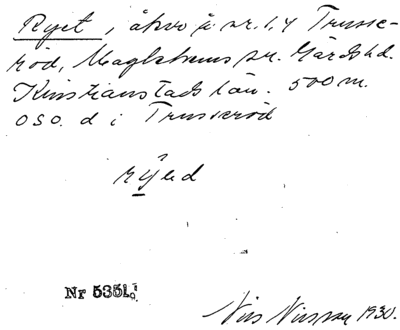 Ryet, åker å nr. 1, 4 Trusse-
röd, Maglehems sn. Gärds hd.
Kristianstads län. 500 m.
OSO. d i Trusseröd
Nr 5351.
Nils Nilsson 1930.